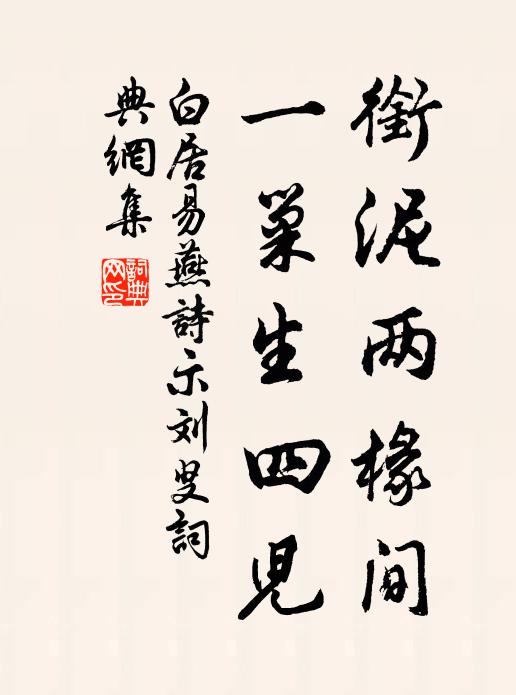 銜泥两椽间
一巢生四児
白居易燕詩示刘叟詞
典網集
詞典网印